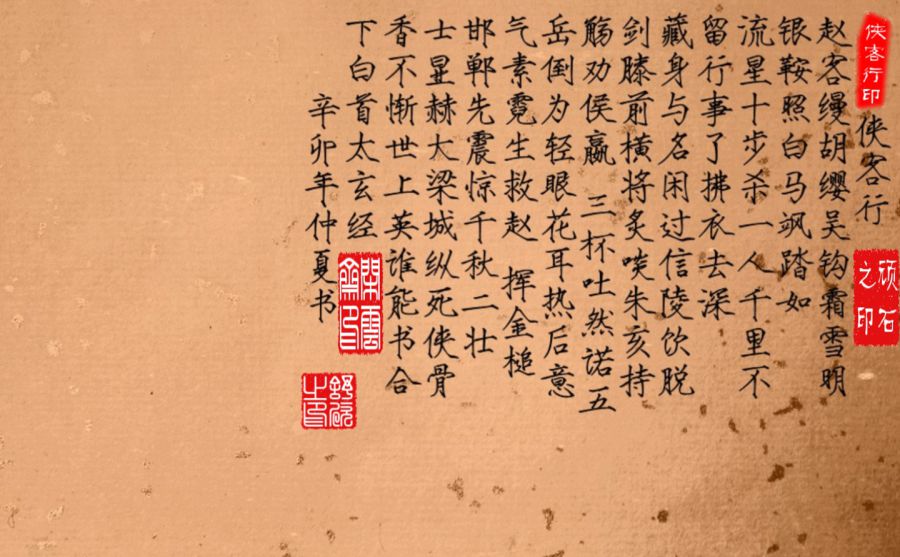 侠客行印
侠客行
顽石之印
赵客缦胡缨吴钩霜雪明
银鞍照白马飒踏如
流星十步杀一人千里不
留行事了拂衣去深
藏身与名闲过信陵饮脱
剑膝前横将炙啖朱亥持
觞劝侯嬴 三杯吐然诺五
岳倒为轻眼花耳热后意
气素霓生救赵 挥金槌
邯郸先震惊千秋二壮
士显赫大梁城纵死侠骨
香不惭世上英谁能书合
下白首太玄经
辛卯年仲夏书
閑雲齋印